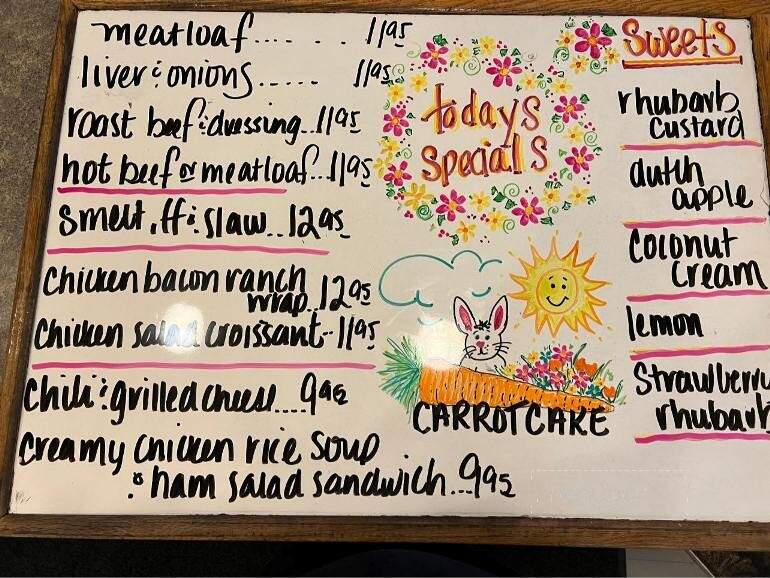 meatloaf...... 11.95
liver & onions..... 11.95
roast beef & dressing..11.95
hot beef or meatloaf..11.95
smelt, ff & slaw..12.95
chicken bacon ranch
wrap..12.95
chicken salad croissant..11.95
chili & grilled cheese....9.95
creamy chicken rice soup
& ham salad sandwich...9.95
todays
specials
CARROTCAKE
Sweets
rhubarb
custard
dutch
apple
coconut
cream
lemon
Strawberry
rhubarb